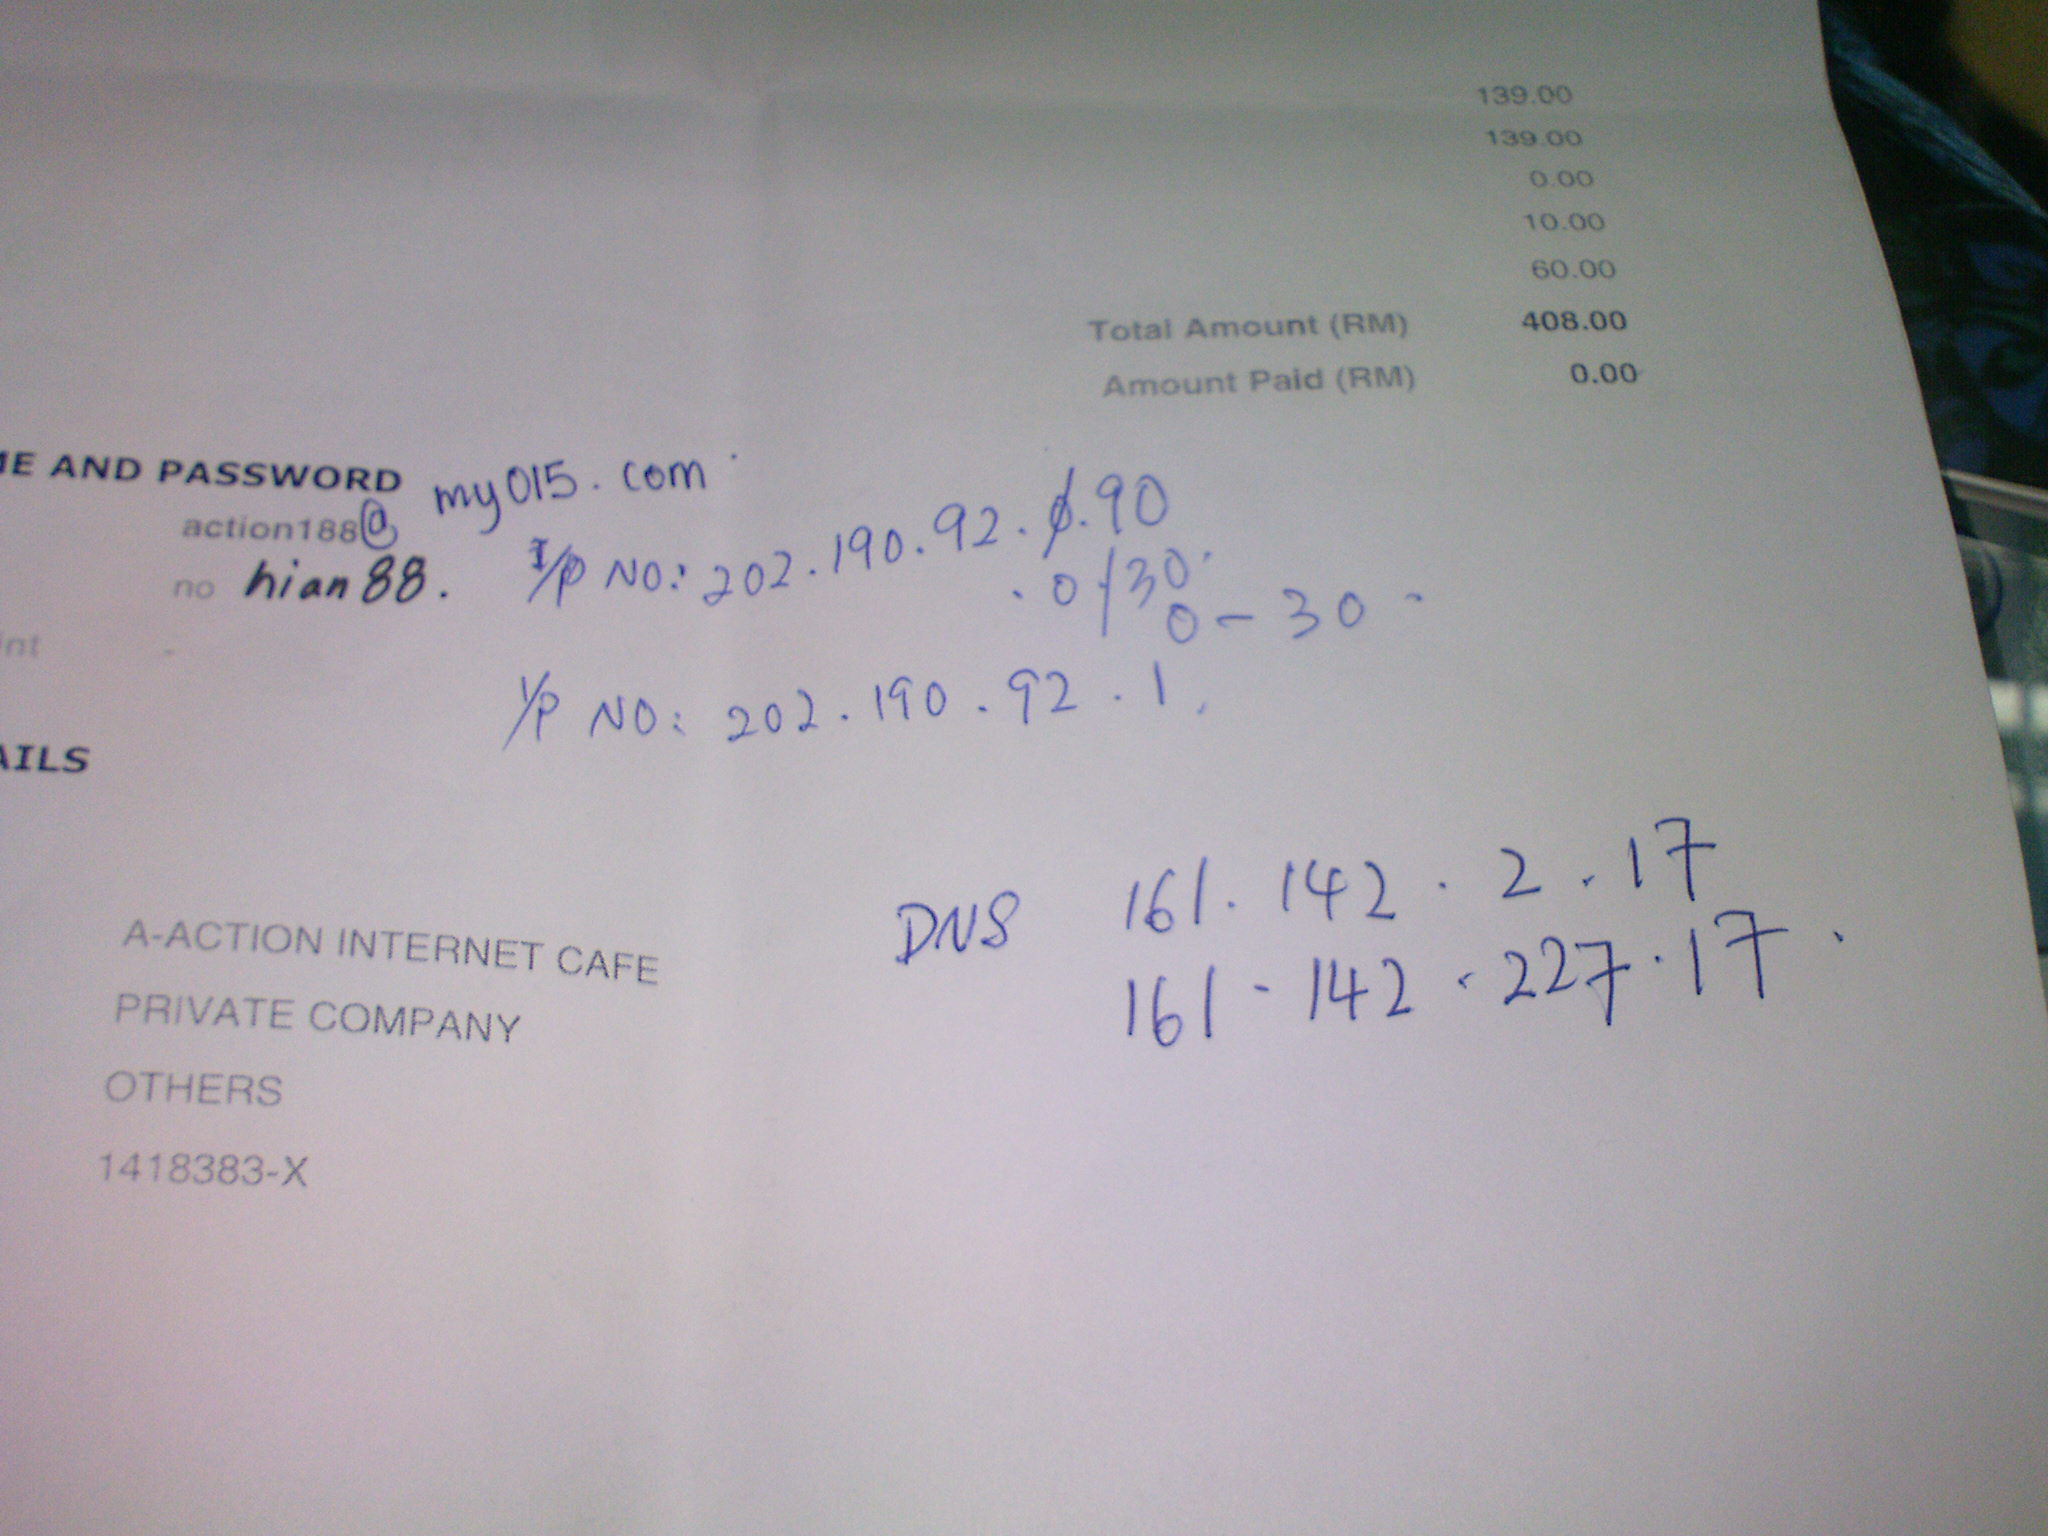 139.00
139.00
0.00
10.00
60.00
Total Amount (RM) 408.00
Amount Paid (RM) 0.00
AND PASSWORD
action188@ my015.com
no hian88.
I/P NO: 202.190.92.0.90
.0/30.
0-30
I/P NO: 202.190.92.1.
A-ACTION INTERNET CAFE
PRIVATE COMPANY
OTHERS
1418383-X
DNS 161.142.2.17
161-142.227.17.